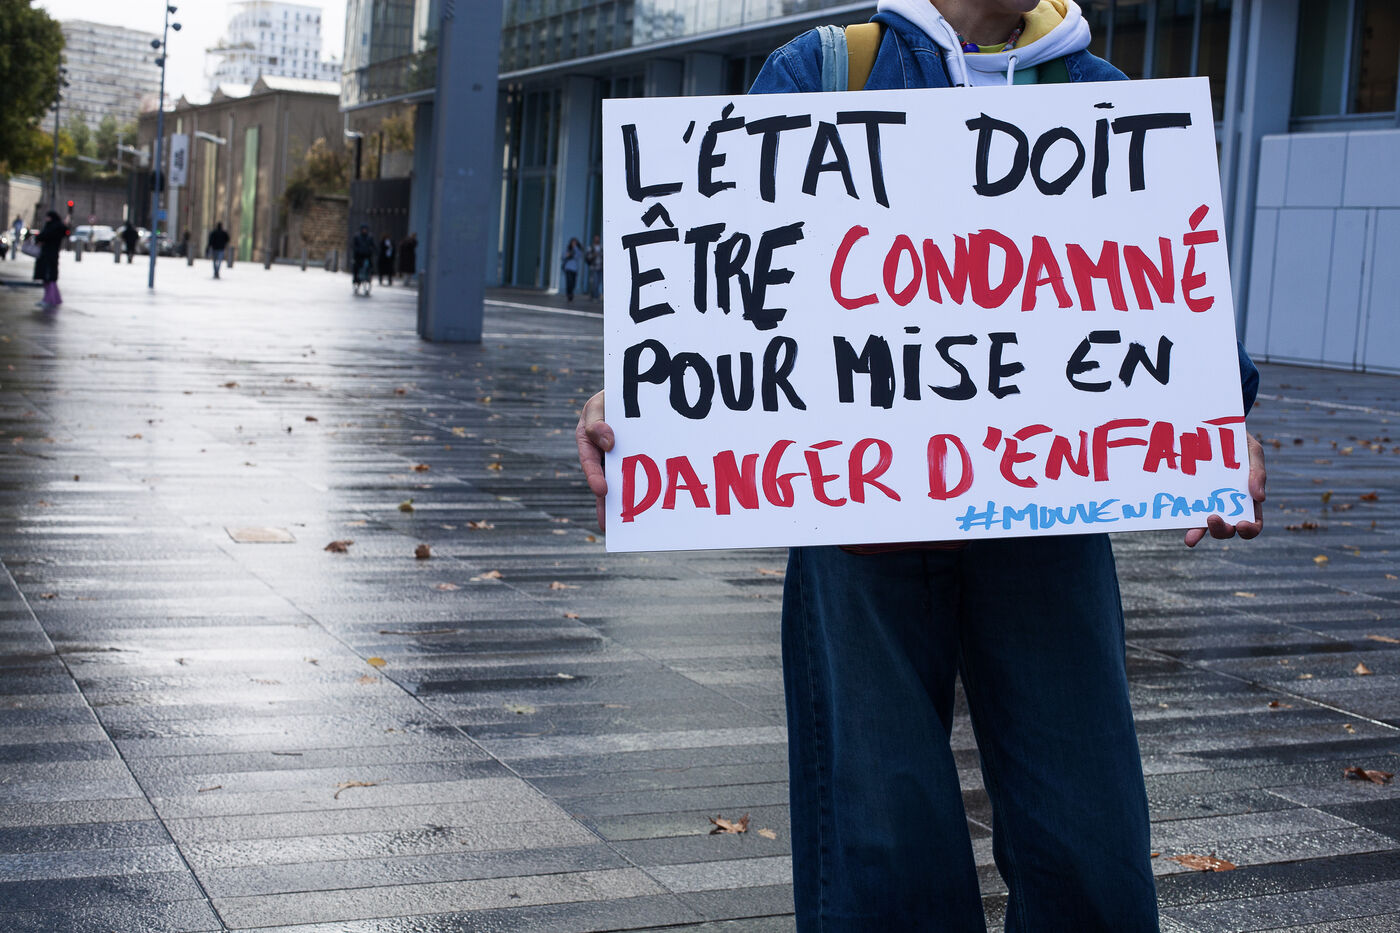 L'ÉTAT DOIT
ÊTRE CONDAMNÉ
POUR MISE EN
DANGER D'ENFANT
#MOUVENFANTS